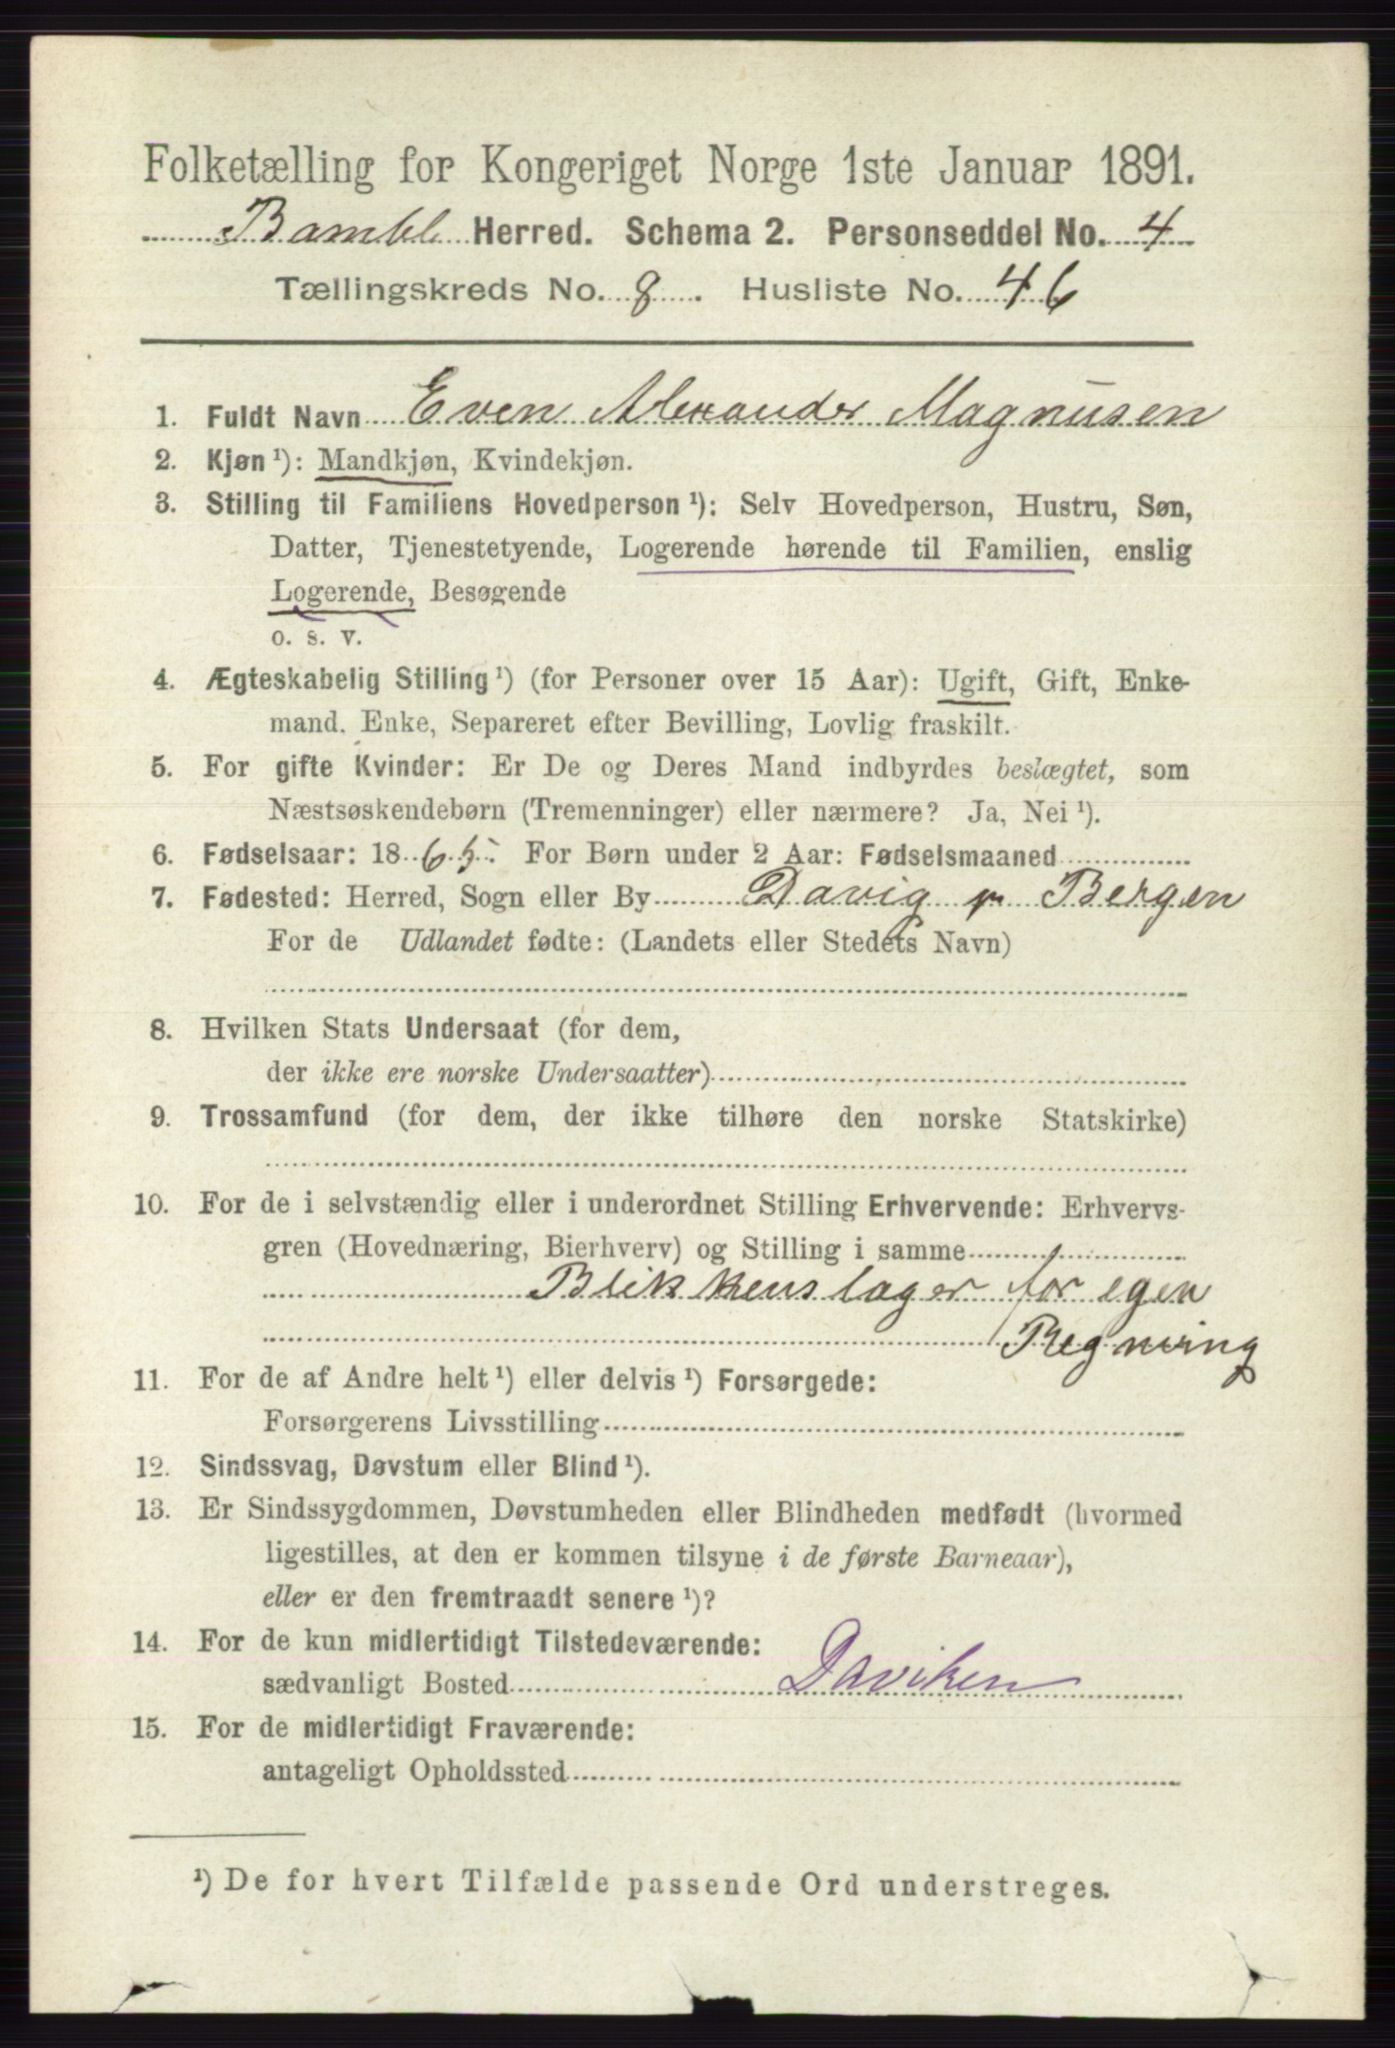 Folketælling for Kongeriget Norge 1ste Januar 1891.
Bamble Herred. Schema 2. Personseddel No. 4
Tællingskreds No. 8. Husliste No. 46
1. Fuldt Navn Even Alexander Magnusen
2. Kjøn¹): Mandkjøn, Kvindekjøn.
3. Stilling til Familiens Hovedperson¹): Selv Hovedperson, Hustru, Søn,
Datter, Tjenestetyende, Logerende hørende til Familien, enslig
Logerende, Besøgende
o. s. v.
4. Ægteskabelig Stilling¹) (for Personer over 15 Aar): Ugift, Gift, Enke-
mand. Enke, Separeret efter Bevilling, Lovlig fraskilt.
5. For gifte Kvinder: Er De og Deres Mand indbyrdes beslægtet, som
Næstsøskendebørn (Tremenninger) eller nærmere? Ja, Nei¹).
6. Fødselsaar: 1865. For Børn under 2 Aar: Fødselsmaaned
7. Fødested: Herred, Sogn eller By Davig pr Bergen
For de Udlandet fødte: (Landets eller Stedets Navn)
8. Hvilken Stats Undersaat (for dem,
der ikke ere norske Undersaatter)
9. Trossamfund (for dem, der ikke tilhøre den norske Statskirke)
10. For de i selvstændig eller i underordnet Stilling Erhvervende: Erhvervs-
gren (Hovednæring, Bierhverv) og Stilling i samme
Blikkenslager for egen
Regning
11. For de af Andre helt¹) eller delvis¹) Forsørgede:
Forsørgerens Livsstilling
12. Sindssvag, Døvstum eller Blind¹).
13. Er Sindssygdommen, Døvstumheden eller Blindheden medfødt (hvormed
ligestilles, at den er kommen tilsyne i de første Barneaar),
eller er den fremtraadt senere¹)?
14. For de kun midlertidigt Tilstedeværende:
sædvanligt Bosted Daviken
15. For de midlertidigt Fraværende:
antageligt Opholdssted
¹) De for hvert Tilfælde passende Ord understreges.